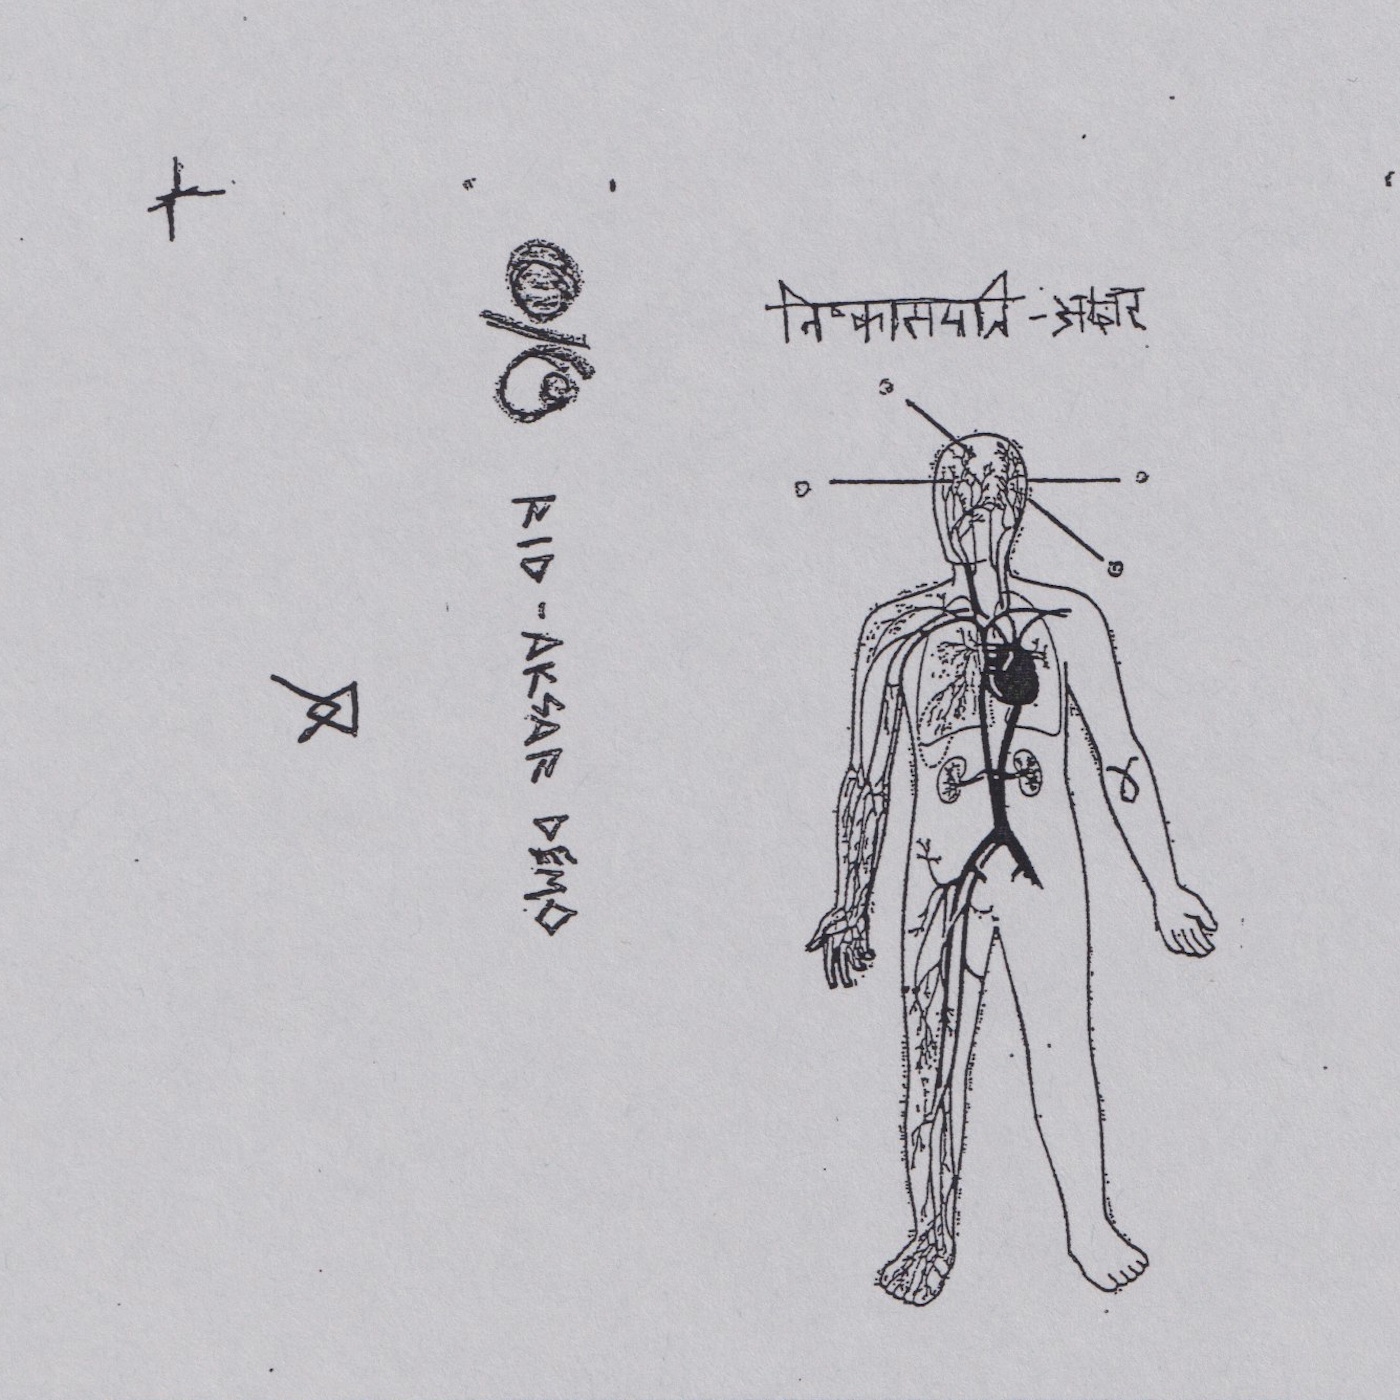 निष्कासयति - अकार
RID-AKSAR DEMO